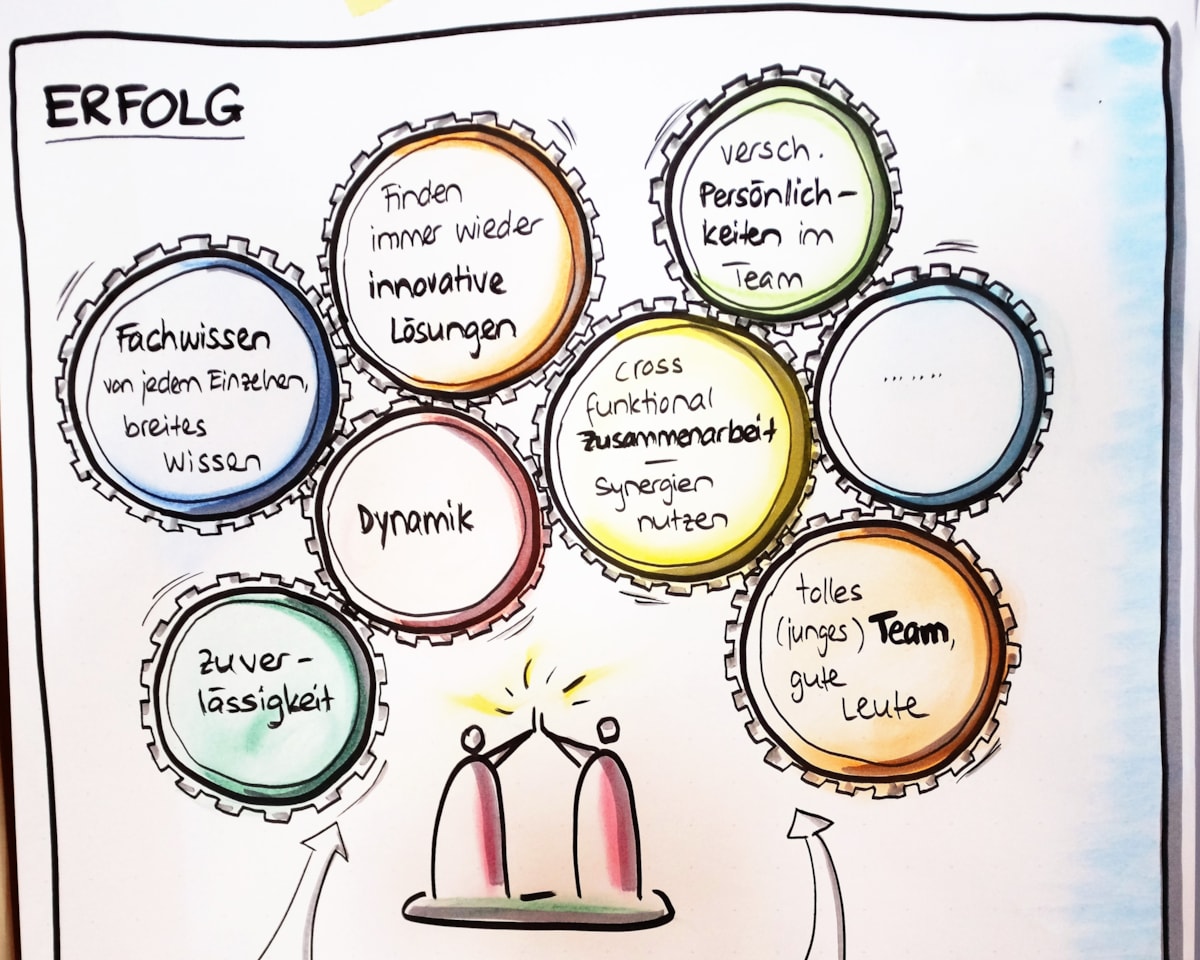 ERFOLG
Finden
immer wieder
innovative
Lösungen
versch.
Persönlich-
keiten im
Team
Fachwissen
von jedem Einzelnen,
breites
Wissen
cross
funktional
Zusammenarbeit
–
Synergien
nutzen
........
Dynamik
Zuver-
lässigkeit
tolles
(junges) Team,
gute
Leute